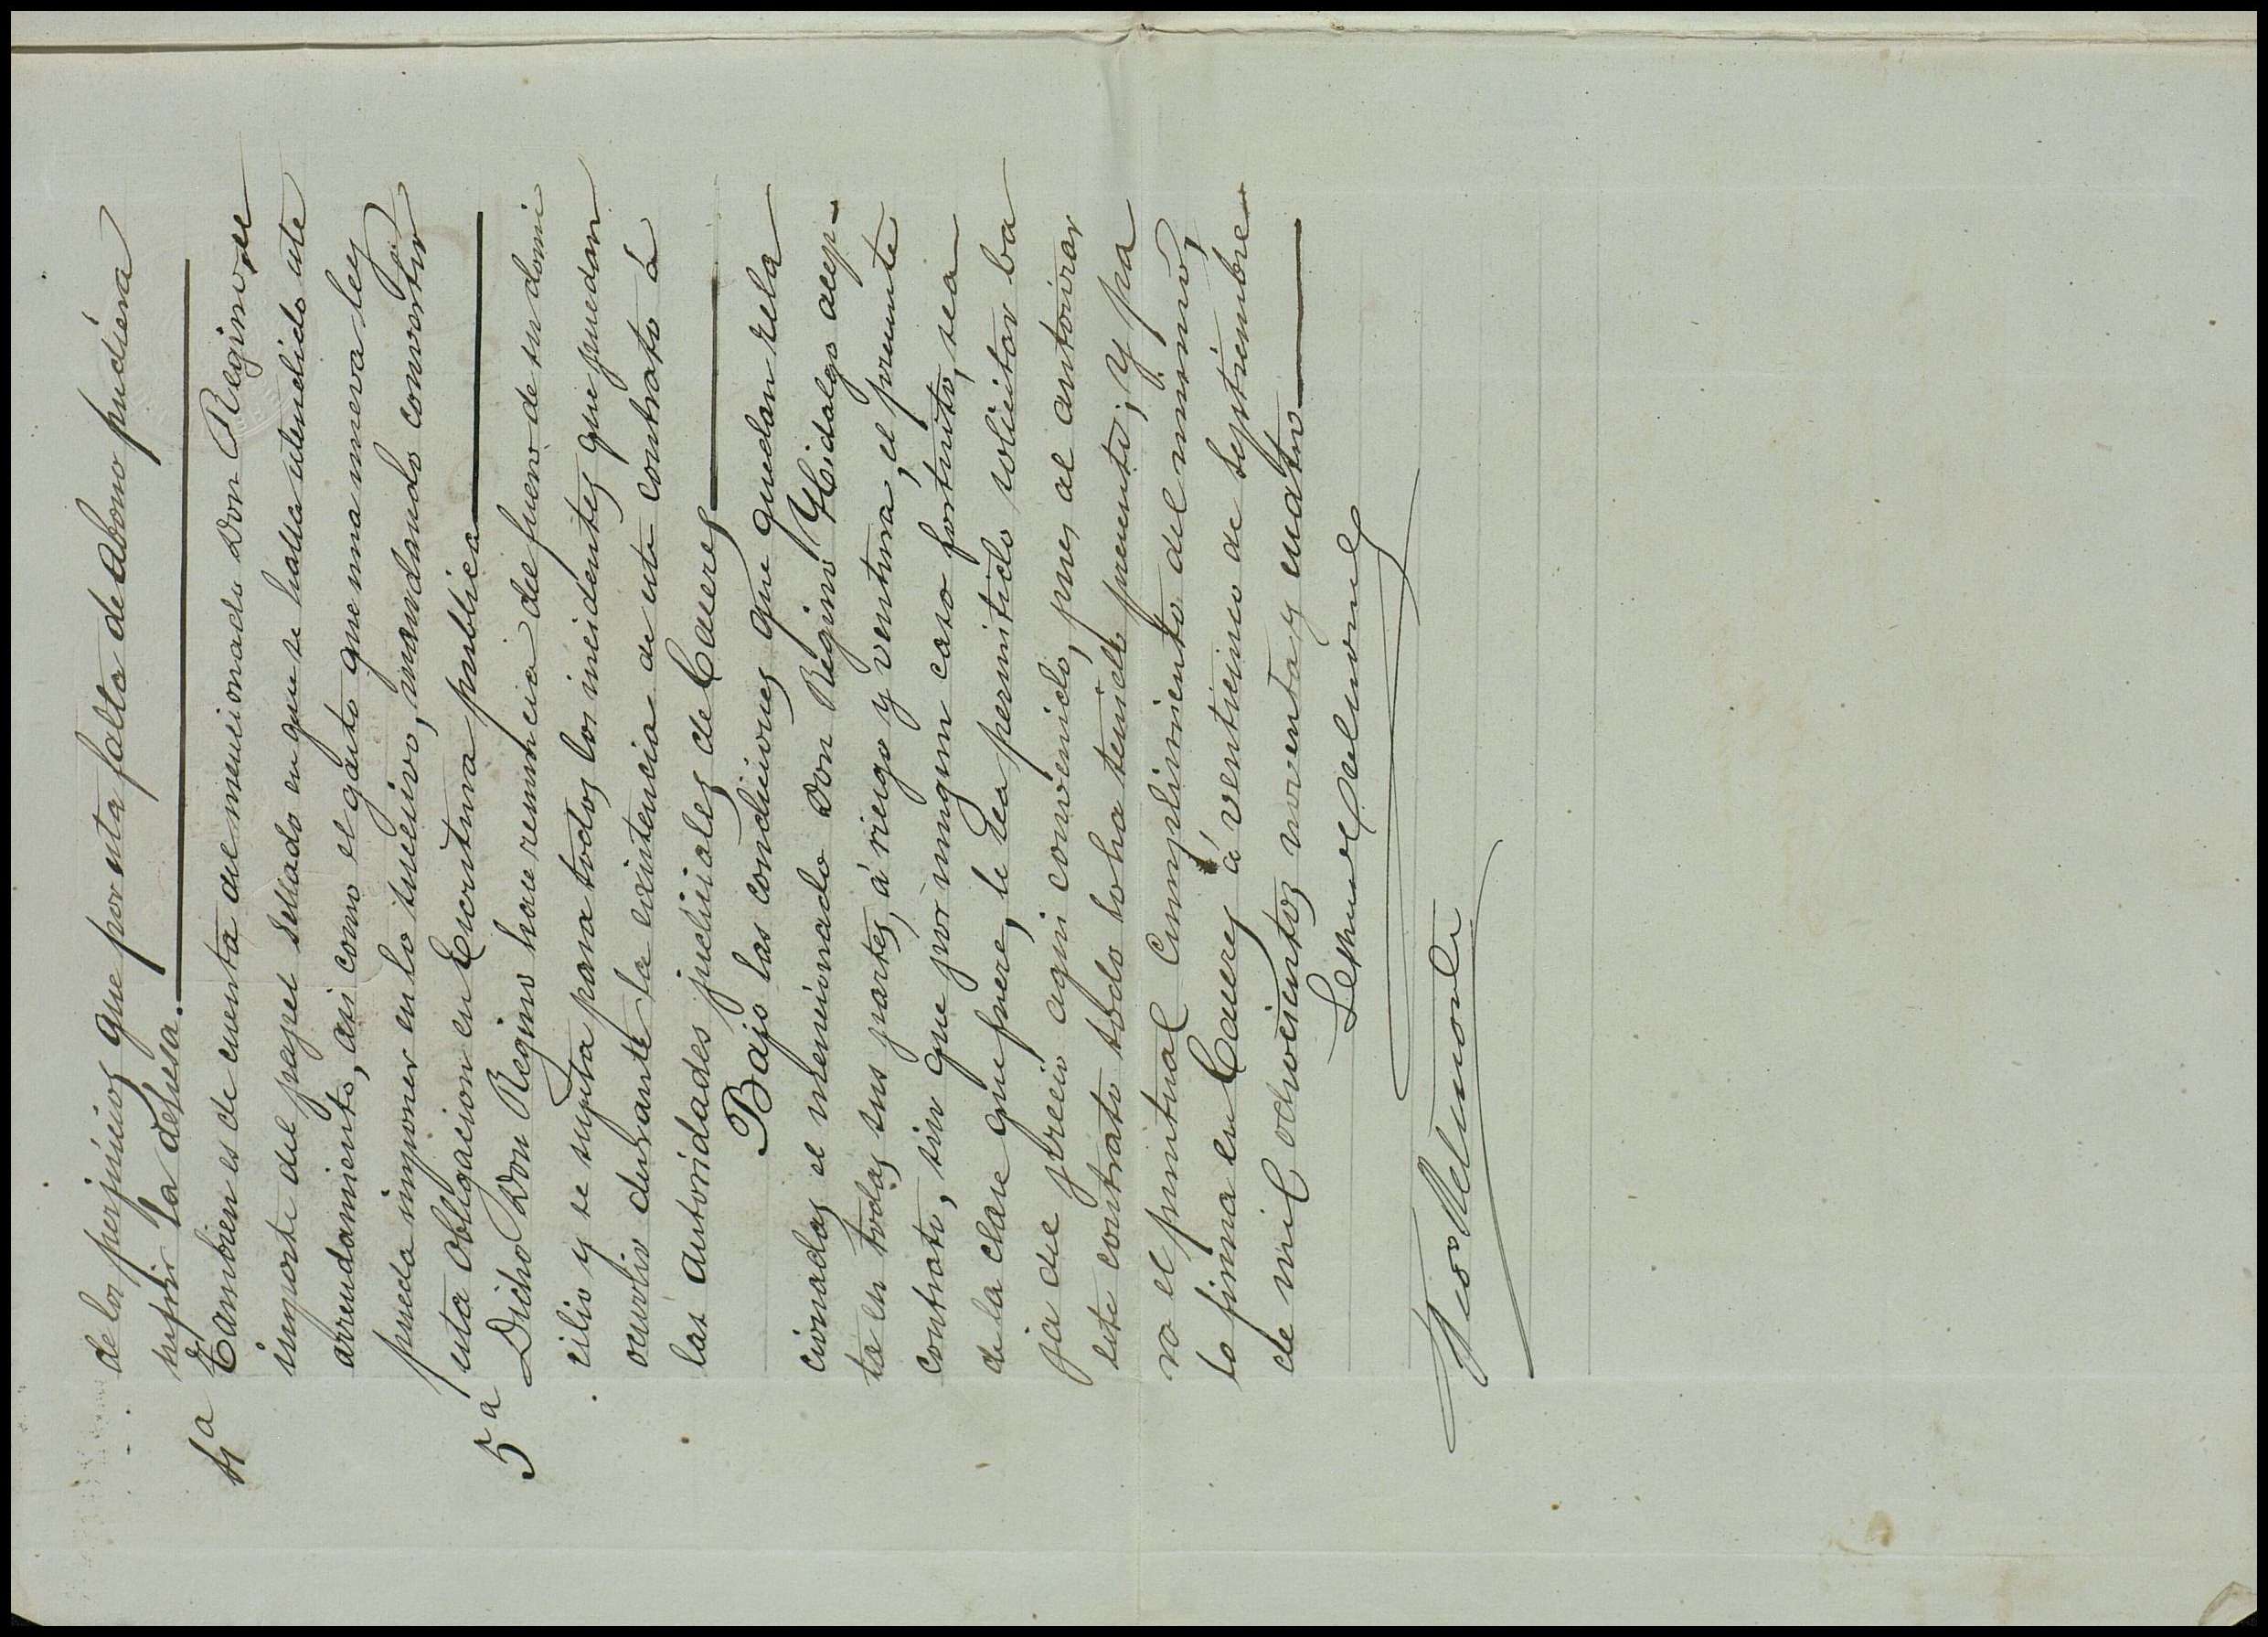 de los perjuicios que por esta falta de abono pudiera
sufrir la dehesa.
4ª Tambien es de cuenta del mencionado Don Regino, el
importe del papel sellado en que se halla estendido este
arrendamiento, asi como el gasto que una nueva ley
pueda imponer en lo sucesivo, mandando convertir
esta obligacion en Escritura publica
5ª Dicho Don Regino hace renuncia del fuero de su domi
cilio y se sugeta para todos los incidentes que puedan
ocurrir durante la existencia de este contrato á
las autoridades judiciales de Caceres
Bajo las condiciones que quedan rela
cionadas el mencionado Don Regino Hidalgo acep-
ta en todas sus partes, á riesgo y ventura, el presente
contrato, sin que por ningun caso fortuito, sea
de la clase que fuere, le sea permitido solicitar ba
ja del precio aqui convenido, pues al autorizar
este contrato todo lo ha tenido presente; y pa
ra el puntual cumplimiento del mismo,
lo firma en Caceres á venticinco de Septiembre
de mil ochocientos noventa y cuatro